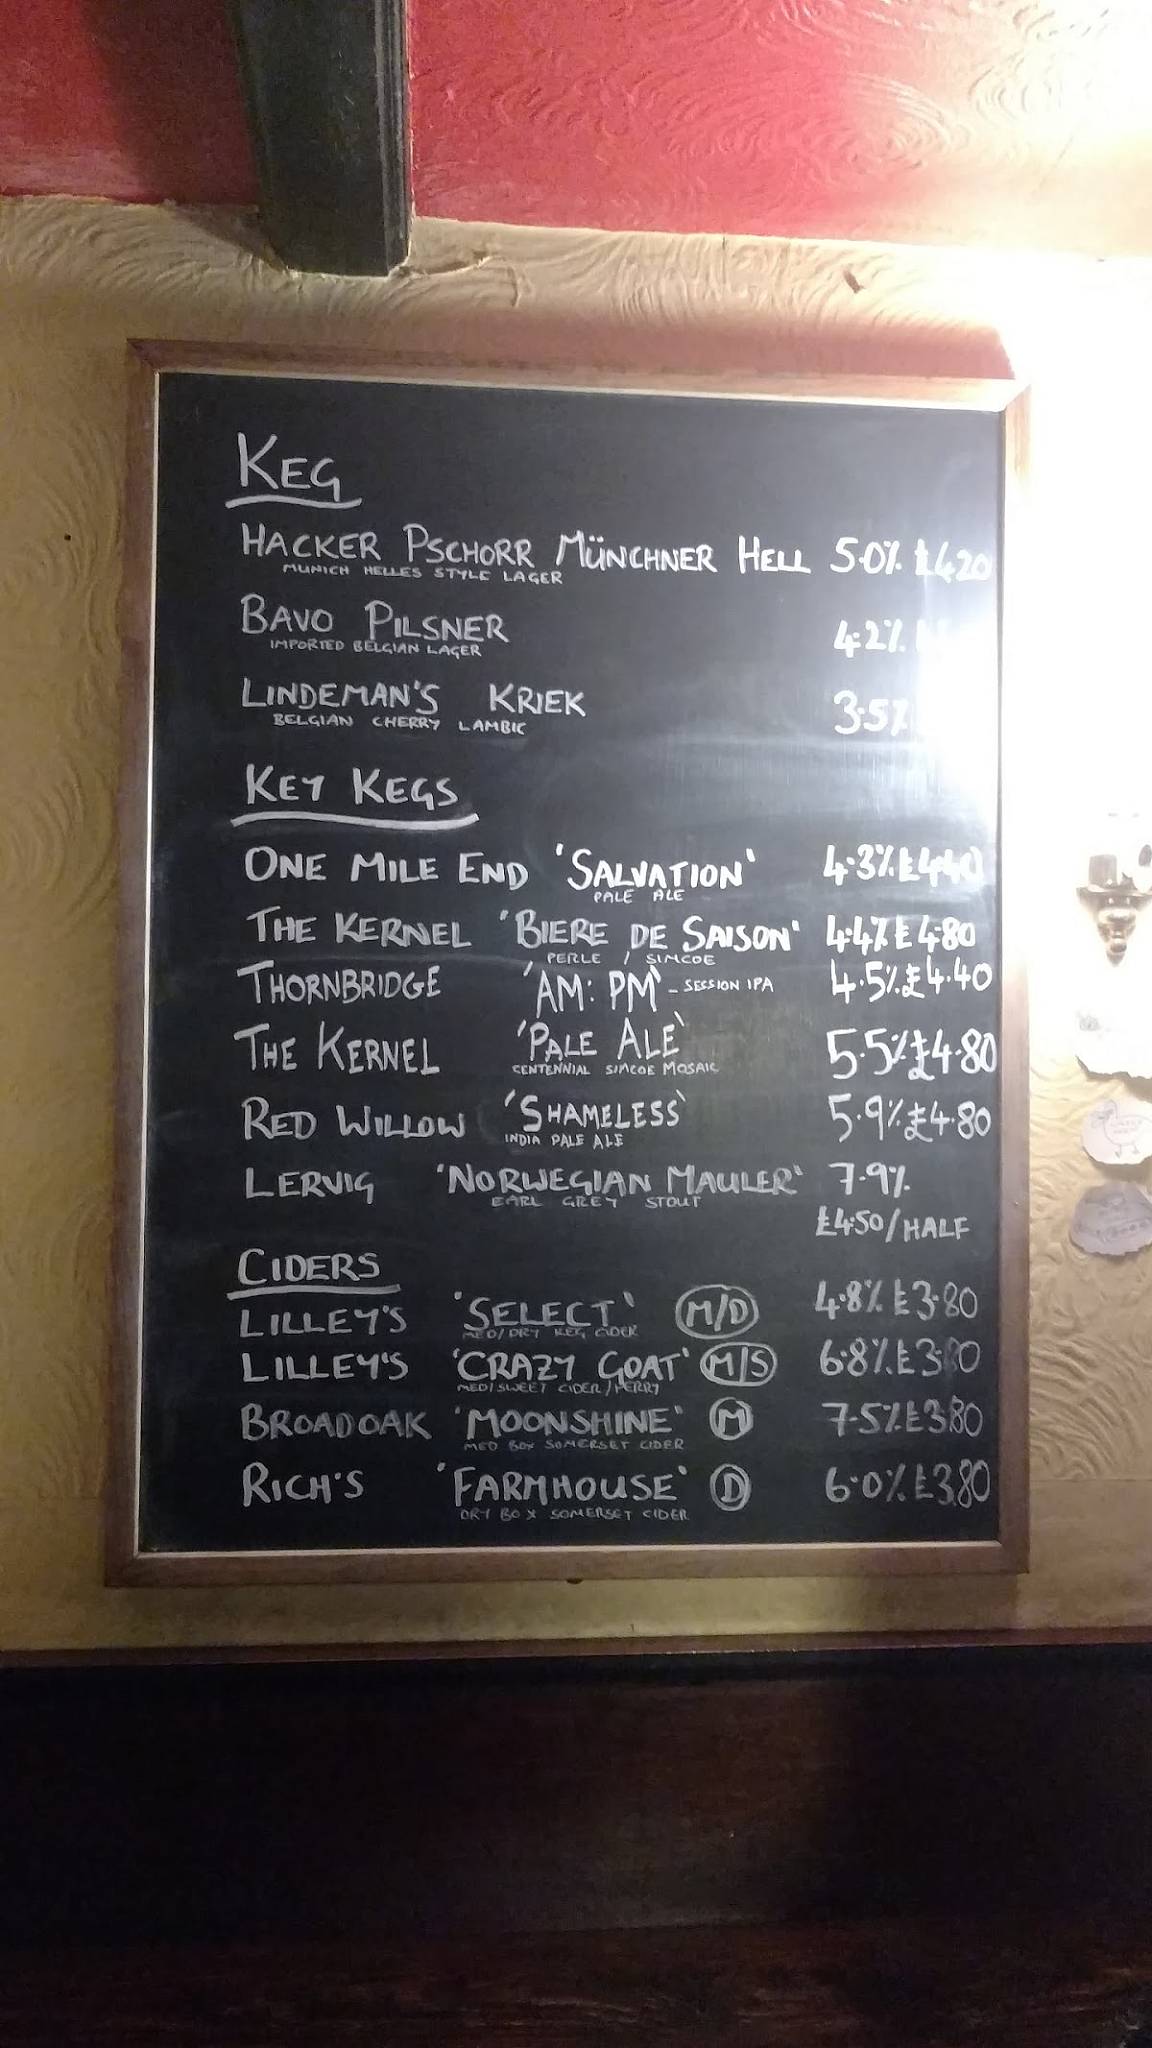 KEG
HACKER PSCHORR MÜNCHNER HELL 5.0% £4.20
MUNICH HELLES STYLE LAGER
BAVO PILSNER 4.2%
IMPORTED BELGIAN LAGER
LINDEMAN'S KRIEK 3.5%
BELGIAN CHERRY LAMBIC
KEY KEGS
ONE MILE END 'SALVATION' 4.3% £4.40
PALE ALE
THE KERNEL 'BIERE DE SAISON' 4.4% £4.80
PERLE / SIMCOE
THORNBRIDGE 'AM:PM' - SESSION IPA 4.5% £4.40
THE KERNEL 'PALE ALE' 5.5% £4.80
CENTENNIAL SIMCOE MOSAIC
RED WILLOW 'SHAMELESS' 5.9% £4.80
INDIA PALE ALE
LERVIG 'NORWEGIAN MAULER' 7.9%
EARL GREY STOUT
£4.50/HALF
CIDERS
LILLEY'S 'SELECT' M/D 4.8% £3.80
MED/DRY KEG CIDER
LILLEY'S 'CRAZY GOAT' M/S 6.8% £3.80
MED/SWEET CIDER/PERRY
BROADOAK 'MOONSHINE' M 7.5% £3.80
MED BOX SOMERSET CIDER
RICH'S 'FARMHOUSE' D 6.0% £3.80
DRY BOX SOMERSET CIDER